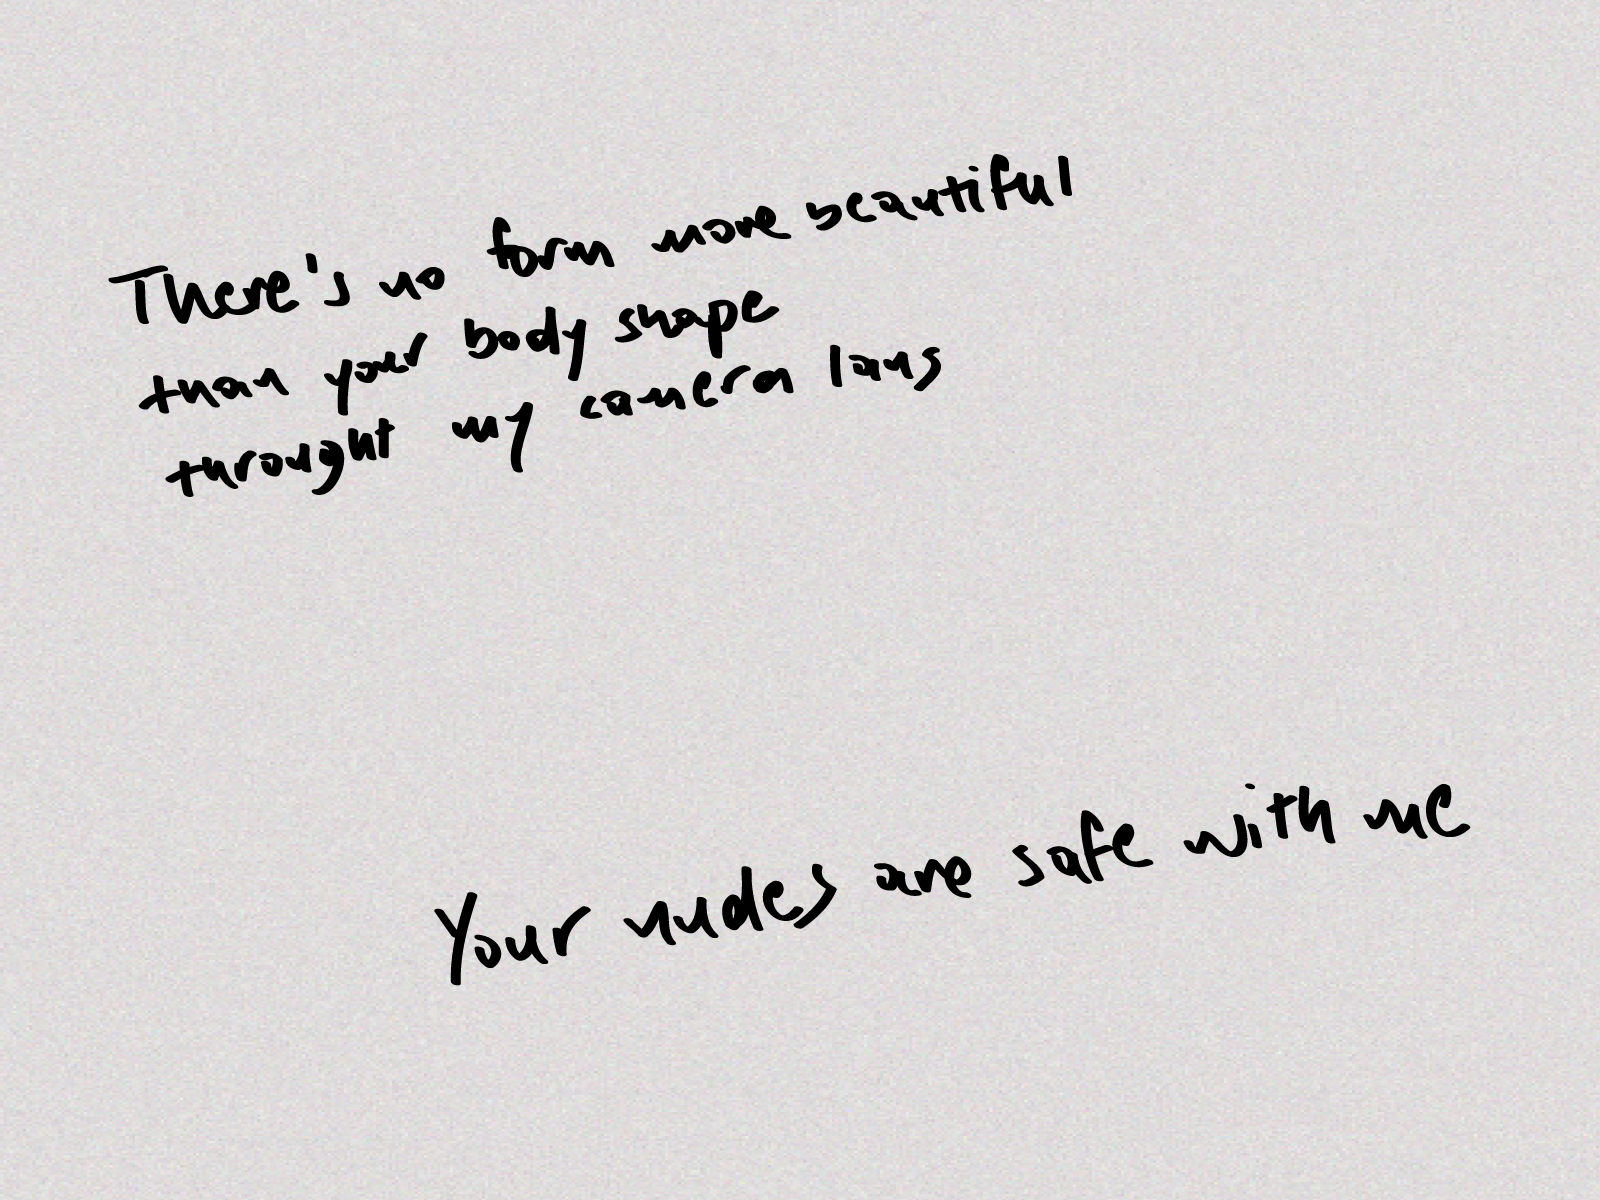 There's no form more beautiful
than your body shape
throught my camera lans
Your nudes are safe with me